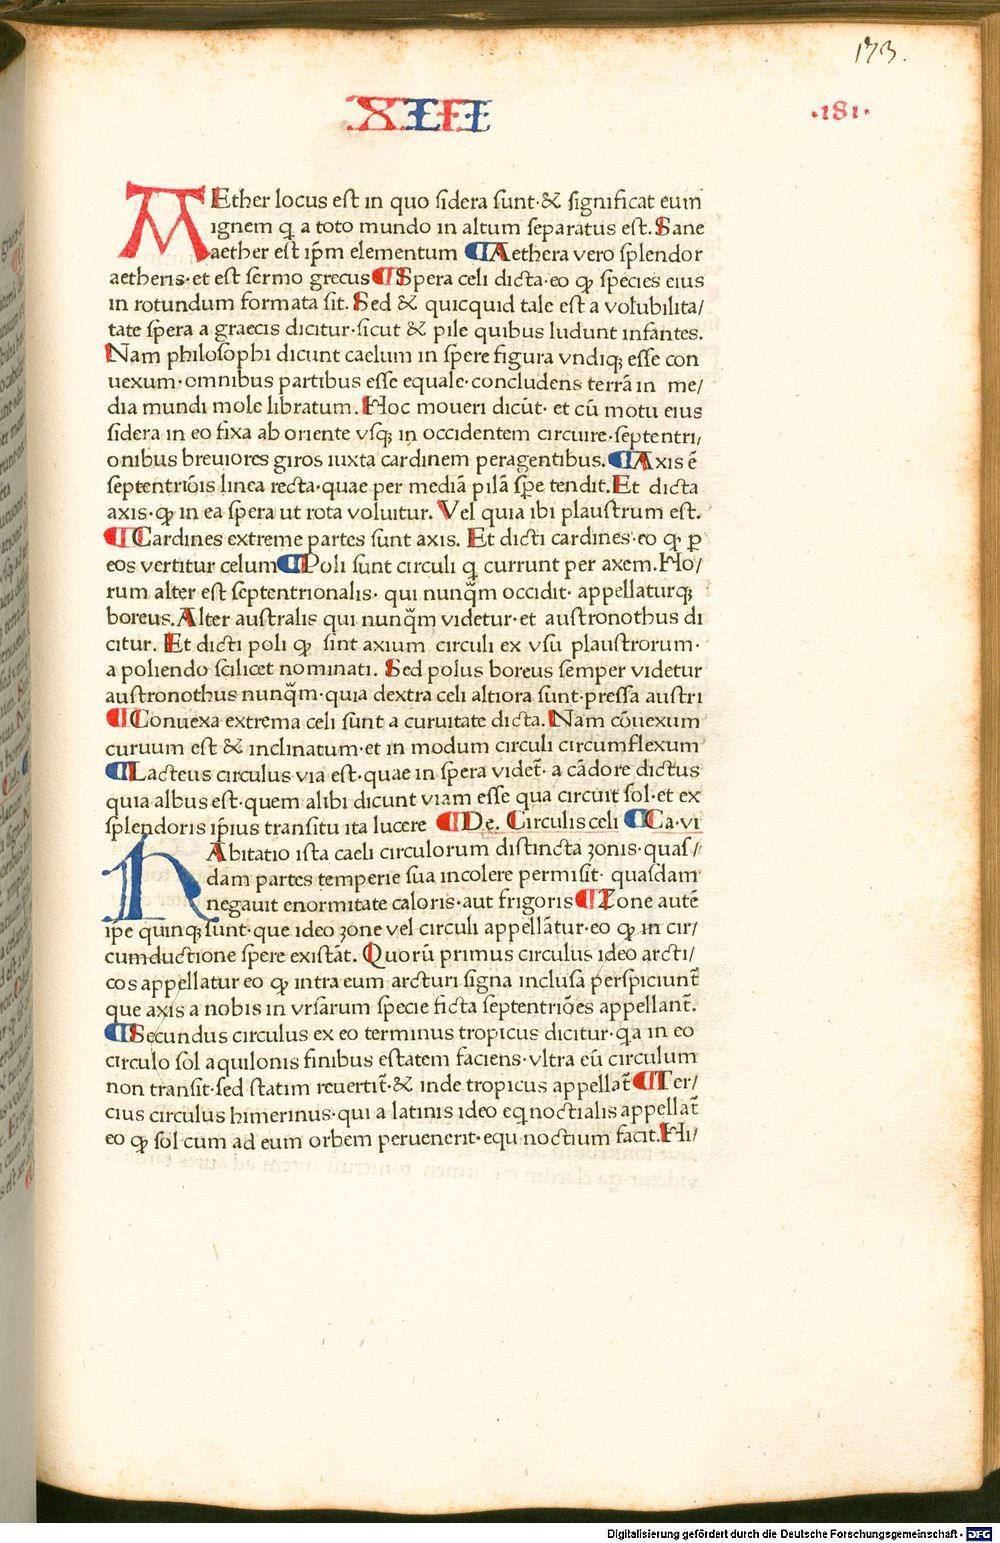 173.
XIII
·181·
AEther locus est in quo sidera sunt·& significat eum
ignem q a toto mundo in altum separatus est. Sane
aether est ip̄m elementum ¶Aethera vero splendor
aetheris·et est sermo grecus ¶Spera celi dicta·eo qꝫ species eius
in rotundum formata sit. Sed & quicquid tale est a volubilita/
tate spera a graecis dicitur·sicut & pile quibus ludunt infantes.
Nam philosophi dicunt caelum in spere figura vndiqꝫ esse con
uexum·omnibus partibus esse equale·concludens terrā in me/
dia mundi mole libratum. Hoc moueri dicūt· et cū motu eius
sidera in eo fixa ab oriente vsqꝫ in occidentem circuire·septentri/
onibus breuiores giros iuxta cardinem peragentibus. ¶Axis ē
septentriōis linea recta·quae per mediā pilā sꝑe tendit. Et dicta
axis·qꝫ in ea spera ut rota voluitur. Vel quia ibi plaustrum est.
¶Cardines extreme partes sunt axis. Et dicti cardines·eo qꝫ ꝑ
eos vertitur celum ¶Poli sunt circuli q currunt per axem. Ho/
rum alter est septentrionalis· qui nunq̄m occidit· appellaturqꝫ
boreus. Alter australis qui nunq̄m videtur·et austronothus di
citur. Et dicti poli qꝫ sint axium circuli ex vsu plaustrorum·
a poliendo scilicet nominati. Sed polus boreus semper videtur
austronothus nunq̄m·quia dextra celi altiora sunt·pressa austri
¶Conuexa extrema celi sunt a curuitate dicta. Nam cōuexum
curuum est & inclinatum·et in modum circuli circumflexum
¶Lacteus circulus via est·quae in spera videt̄· a cādore dictus
quia albus est·quem alibi dicunt viam esse qua circuit sol·et ex
splendoris ip̄ius transitu ita lucere ¶De. Circulis celi ¶Ca·vi
HAbitatio ista caeli circulorum distincta zonis·quas/
dam partes temperie sua incolere permisit· quasdam
negauit enormitate caloris·aut frigoris ¶Zone autē
ipe quinqꝫ sunt·que ideo zone vel circuli appellātur·eo qꝫ in cir/
cumductione spere existāt. Quorū primus circulus ideo arcti/
cos appellatur eo qꝫ intra eum arcturi signa inclusa perspiciunt̄
que axis a nobis in vrsarum specie ficta septentriōes appellant̄.
¶Secundus circulus ex eo terminus tropicus dicitur·qa in eo
circulo sol aquilonis finibus estatem faciens·vltra eū circulum
non transit·sed statim reuertit̄·& inde tropicus appellat̄ ¶Ter/
cius circulus himerinus·qui a latinis ideo eqnoctialis appellat̄
eo qꝫ sol cum ad eum orbem peruenerit·equnoctium facit. Hi/
Digitalisierung gefördert durch die Deutsche Forschungsgemeinschaft - DFG